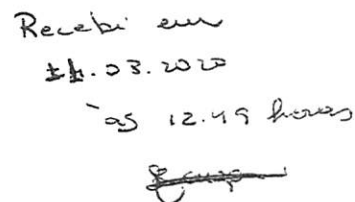 Recebi em
11.03.2020
às 12.49 horas